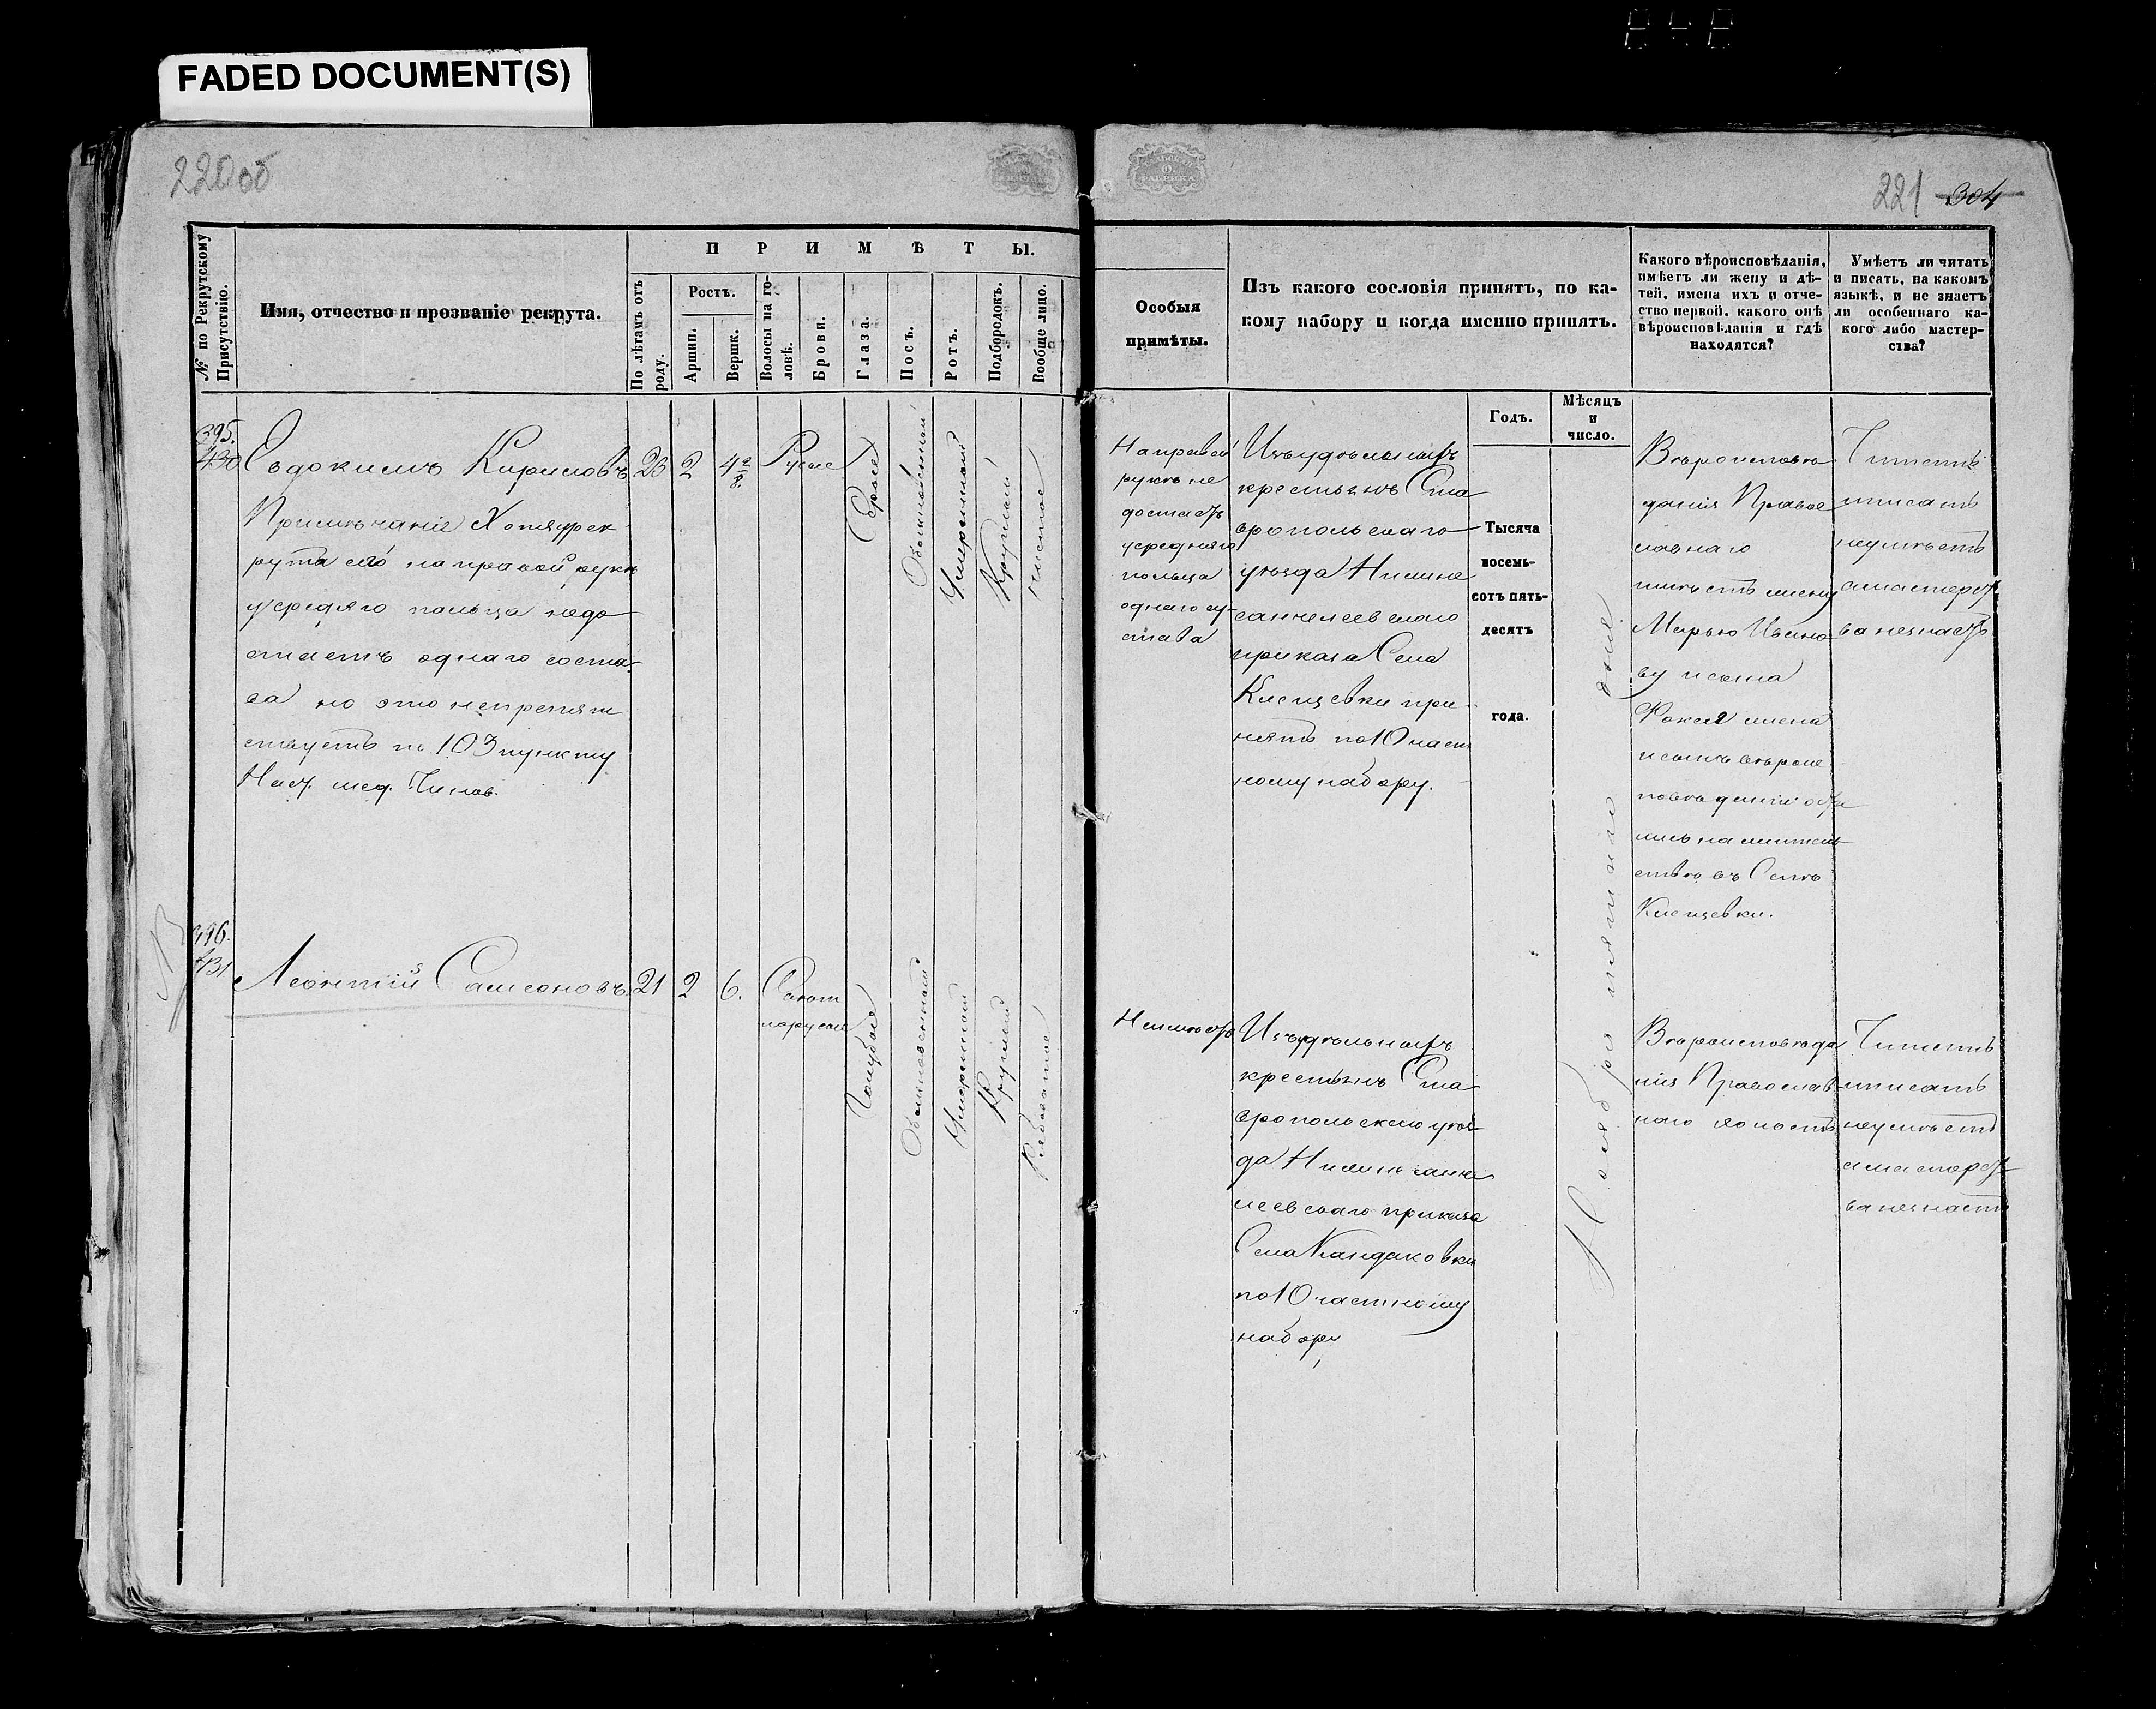 FADED DOCUMENT(S)
220об
221 304
№ по Рекрутскому Присутствію.
Имя, отчество и прозваніе рекрута.
ПРИМѢТЫ.
По лѣтамъ отъ роду.
Ростъ.
Аршин.
Вершк.
Волосы на головѣ.
Брови.
Глаза.
Носъ.
Ротъ.
Подбородокъ.
Вообще лицо.
Особыя
примѣты.
Изъ какого сословія принятъ, по ка-
кому набору и когда именно принятъ.
Какого вѣроисповѣданія,
имѣетъ ли жену и дѣ-
тей, имена ихъ и отче-
ство первой, какого онѣ
вѣроисповѣданія и гдѣ
находятся?
Умѣетъ ли читать
и писать, на какомъ
языкѣ, и не знаетъ
ли особеннаго ка-
кого либо мастер-
ства?
Годъ.
Мѣсяцъ
и
число.
395.
430
Евдокимъ Кириловъ 20 2 4 2/8. Русые
Сѣрые
Обыкновенный
Умеренный
Круглый
чистое
Примѣчаніе Хотя у рек
рута сего на правой рукѣ
у средняго пальца недо
стаетъ однаго соста
ва но это непрепят
ствуетъ по 103 пункту
Наст. мед. Чинов.
На правой
рукѣ не
достаетъ
у средняго
пальца
однаго су-
става
Изъ удѣльныхъ
крестьянъ Ста
вропольскаго
уѣзда Нижне
санчелеевскаго
приказа Села
Кленцевки при
нятъ по 10 част
ному набору.
Тысяча
восемь-
сотъ пять-
десятъ
года.
Ноября пятаго дня
Вѣроисповѣ
данія Право
славнаго
имѣетъ жену
Марью Ивано
ву и сына
жена
и сынъ вѣроис
повѣданія
на жительст
ствѣ въ Селѣ
Кленцевки.
Читать
и писать
неумѣетъ
а мастерст
ва незнаетъ
396.
431
Леонтій Самсоновъ 21 2 6. Свѣт
лорусые
Голубые
Обыкновенный
Умеренный
Круглый
Рябоватое
Неимѣетъ
Изъ удѣльныхъ
крестьянъ Ста
вропольскаго уѣз
да Нижне санче
леевскаго приказа
Села Кандаковки
по 10 частному
набору
Вѣроисповѣда
нія Православ
наго холостъ
Читать
и писать
неумѣетъ
а мастерст
ва незнаетъ